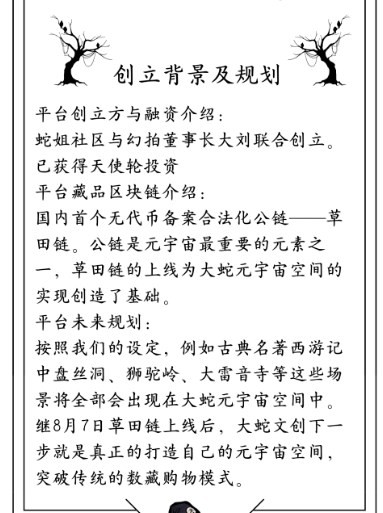 创立背景及规划
平台创立方与融资介绍：
蛇姐社区与幻拍董事长大刘联合创立。
已获得天使轮投资
平台藏品区块链介绍：
国内首个无代币备案合法化公链——草
田链。公链是元宇宙最重要的元素之
一，草田链的上线为大蛇元宇宙空间的
实现创造了基础。
平台未来规划：
按照我们的设定，例如古典名著西游记
中盘丝洞、狮驼岭、大雷音寺等这些场
景将全部会出现在大蛇元宇宙空间中。
继8月7日草田链上线后，大蛇文创下一
步就是真正的打造自己的元宇宙空间，
突破传统的数藏购物模式。